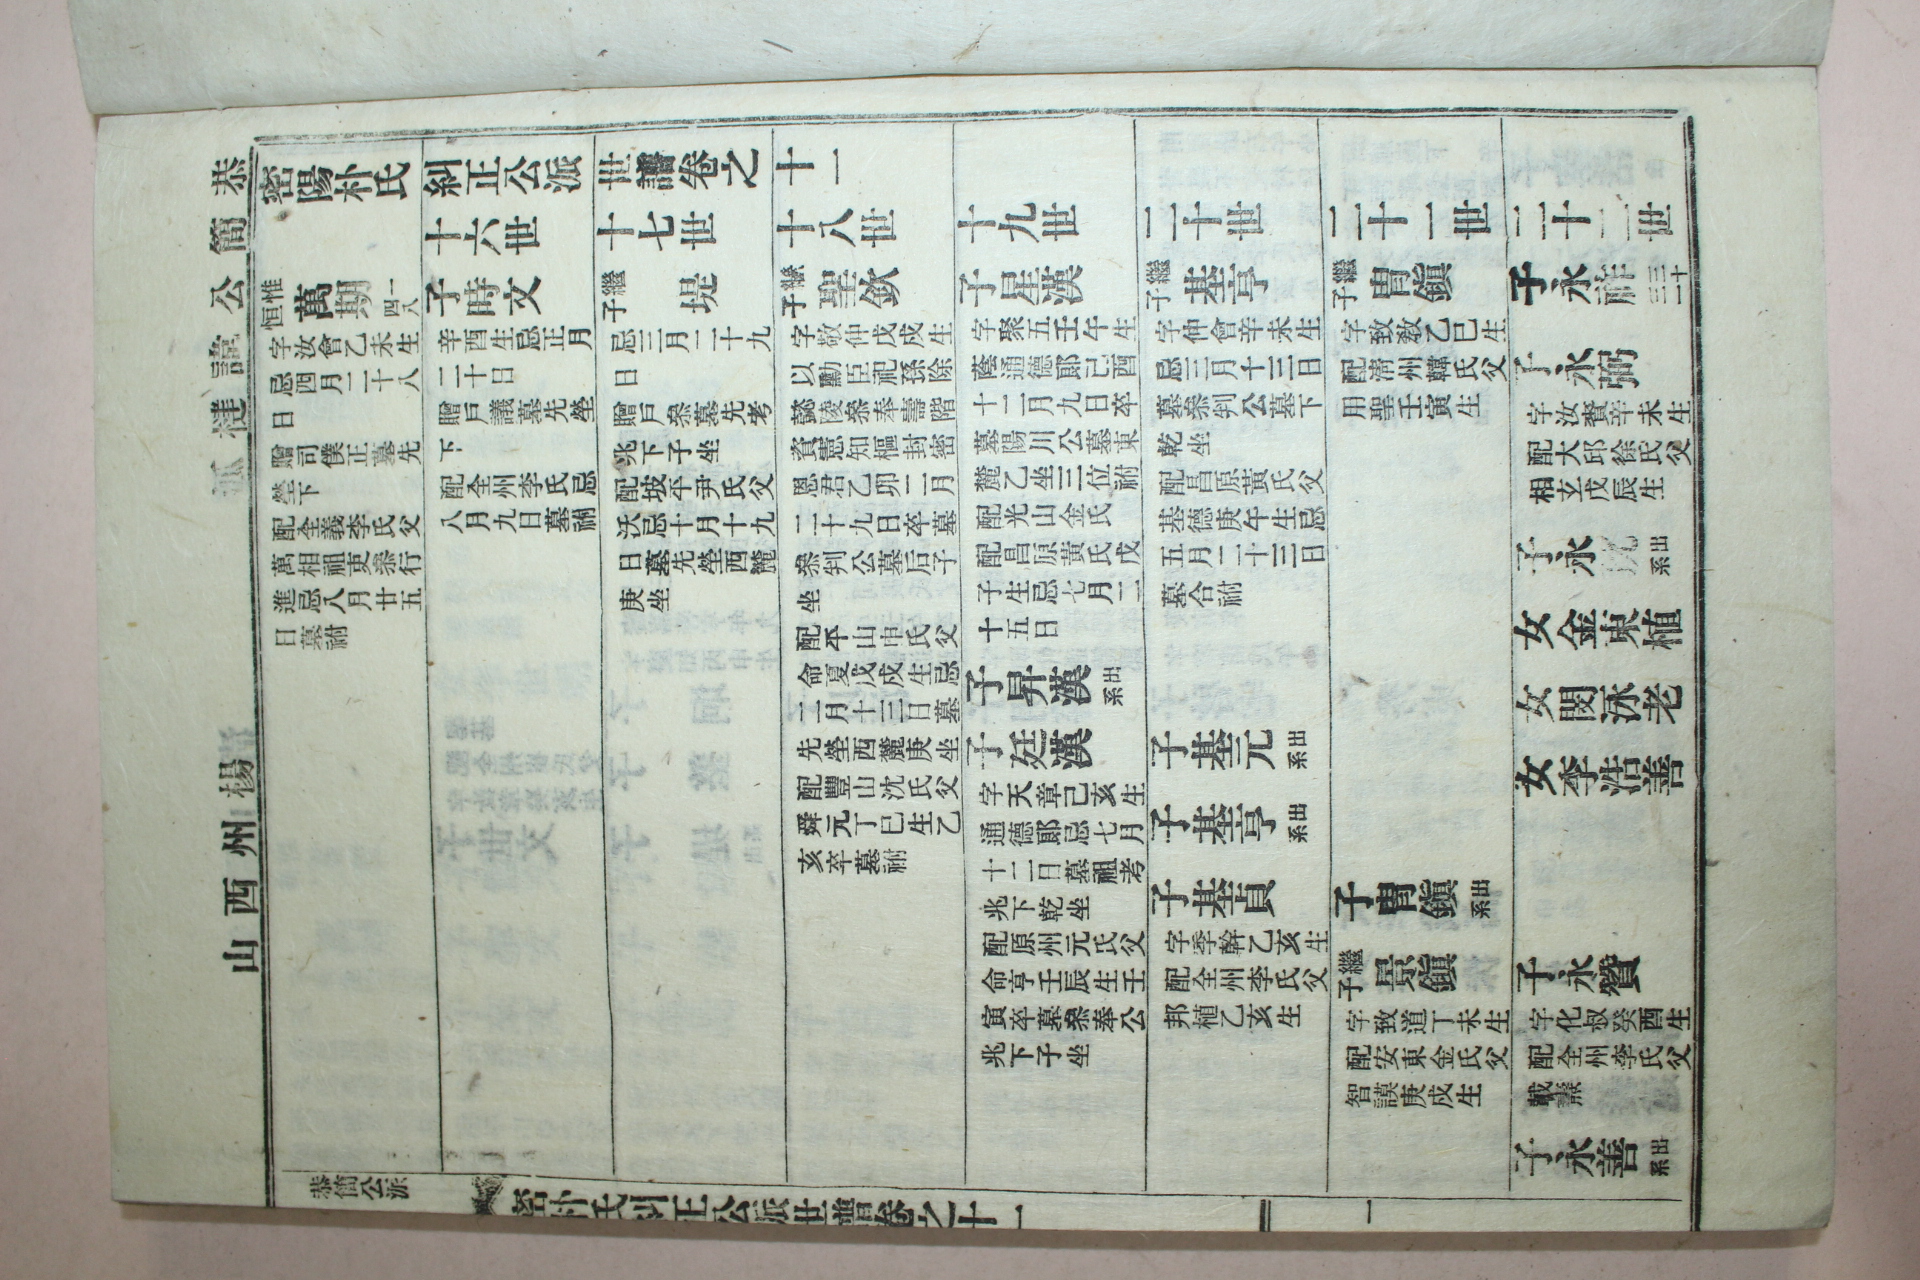 恭簡公諱
楊州西山
密陽朴氏糾正公派世譜卷之十一
十六世
十七世
十八世
十九世
二十世
二十一世
二十二世
萬期
惟恒
一八四
字汝會乙未生
忌四月二十八
日
贈司僕正墓先
塋下
配全義李氏父
萬相祖吏參行
進忌八月廿五
日墓祔
子時文
辛酉生忌正月
二十日
贈戶議墓先塋
下
配全州李氏忌
八月九日墓祔
繼子堤
忌三月二十九
日
贈戶參墓先考
兆下子坐
配坡平尹氏父
沃忌十月十九
日墓先塋西麓
庚坐
繼子聖欽
字敬仲戊戌生
以勳臣祀孫除
懿陵參奉壽階
資憲知樞封密
恩君乙卯二月
二十九日卒墓
參判公墓后子
坐
配平山申氏父
命夏戊戌生忌
二月十三日墓
先塋西麓庚坐
配豐山沈氏父
舜元丁巳生乙
亥卒墓祔
子星漢
字聚五壬午生
蔭通德郞己酉
十二月九日卒
墓陽川公墓東
麓乙坐三位祔
配光山金氏
配昌原黃氏戊
子生忌七月二
十五日
子昇漢 出系
子廷漢
字天章己亥生
通德郞忌七月
十二日墓祖考
兆下乾坐
配原州元氏父
命亨壬辰生壬
寅卒墓參奉公
兆下子坐
繼子基亭
字仲會辛未生
忌三月十三日
墓參判公墓下
乾坐
配昌原黃氏父
基德庚午生忌
五月二十三日
墓合祔
子基元 出系
子基亭 出系
子基貞
字季幹乙亥生
配全州李氏父
邦植乙亥生
繼子冑鎭
字致敎乙巳生
配淸州韓氏父
用聖壬寅生
子冑鎭 出系
繼子景鎭
字致道丁未生
配安東金氏父
智謨庚戌生
子永祚
子永弼
字汝賚辛未生
配大邱徐氏父
相玄戊辰生
子永 出系
女金東植
女閔泳老
女李浩善
子永贊
字化叔癸酉生
配全州李氏父
載
子永善 出系
恭簡公派
密朴氏糾正公派世譜卷之十一
一